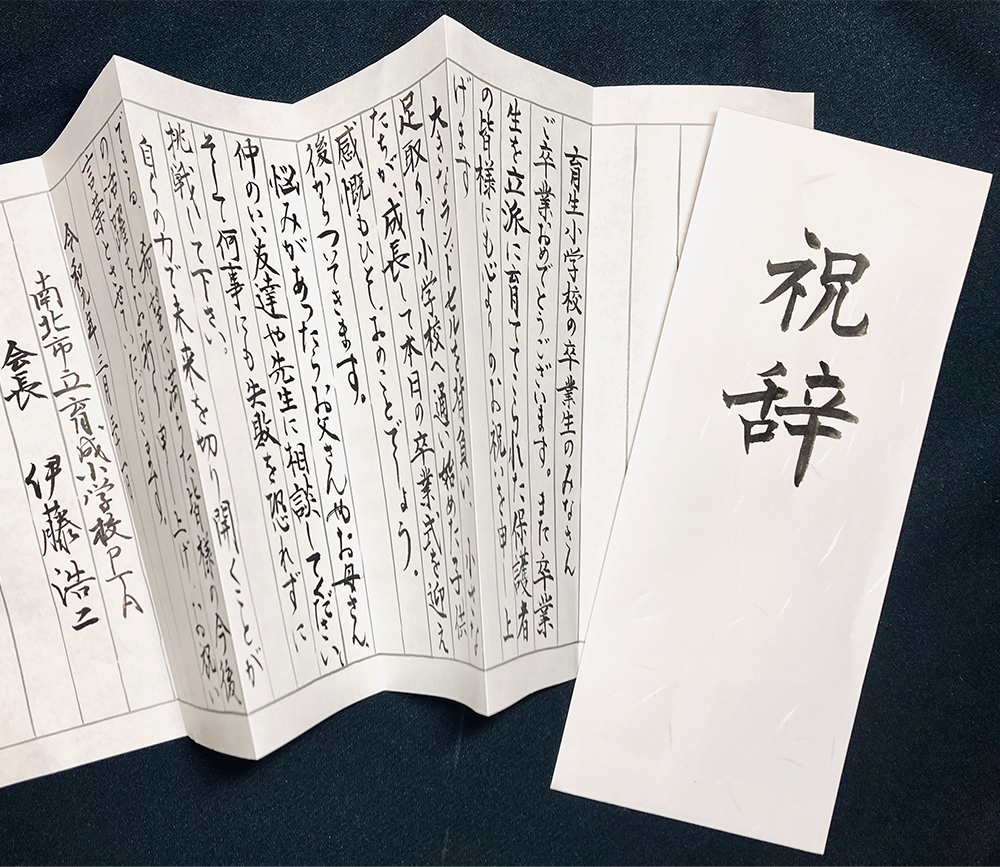 祝辞
育生小学校の卒業生のみなさん
ご卒業おめでとうございます。また卒業
生を立派に育ててこられた保護者
の皆様にも心よりのお祝いを申し上
げます
大きなランドセルを背負い、小さな
足取りで小学校へ通い始めた子供
たちが、成長して本日の卒業式を迎え
感慨もひとしおのことでしょう。
後からついてきます。
悩みがあったらお父さんやお母さん、
仲のいい友達や先生に相談してください。
そして何事にも失敗を恐れずに
挑戦して下さい。
自らの力で未来を切り開くことが
できる、希望に満ちた皆様の今後
の活躍をお祈り申し上げ、お祝い
の言葉とさせていただきます。
令和 年 三月
南北市立育成小学校PTA
会長 伊藤浩二